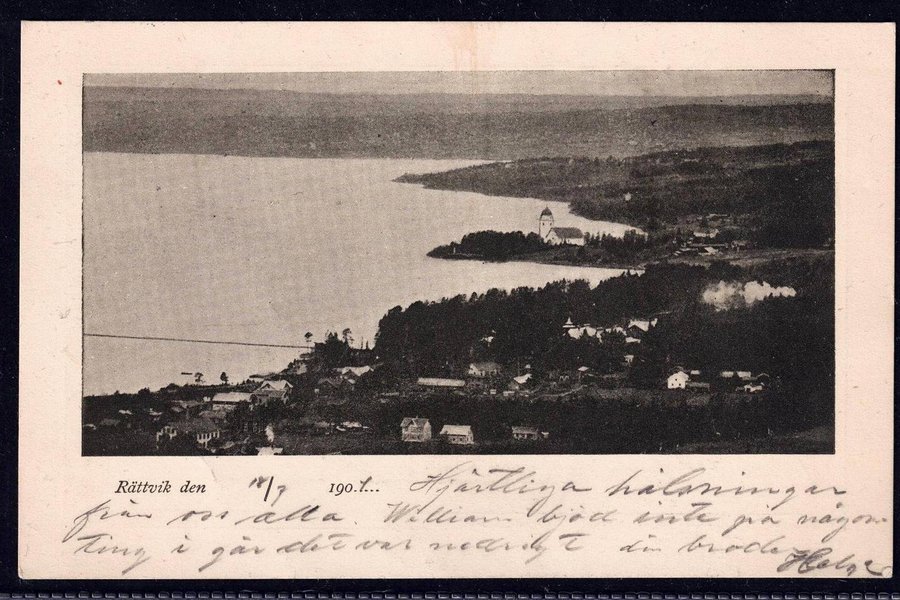 Rättvik den 18/7 1901... Hjärtliga hälsningar
från oss alla. William bjöd inte på någon
ting i går det var nedrigt din broder
Helge